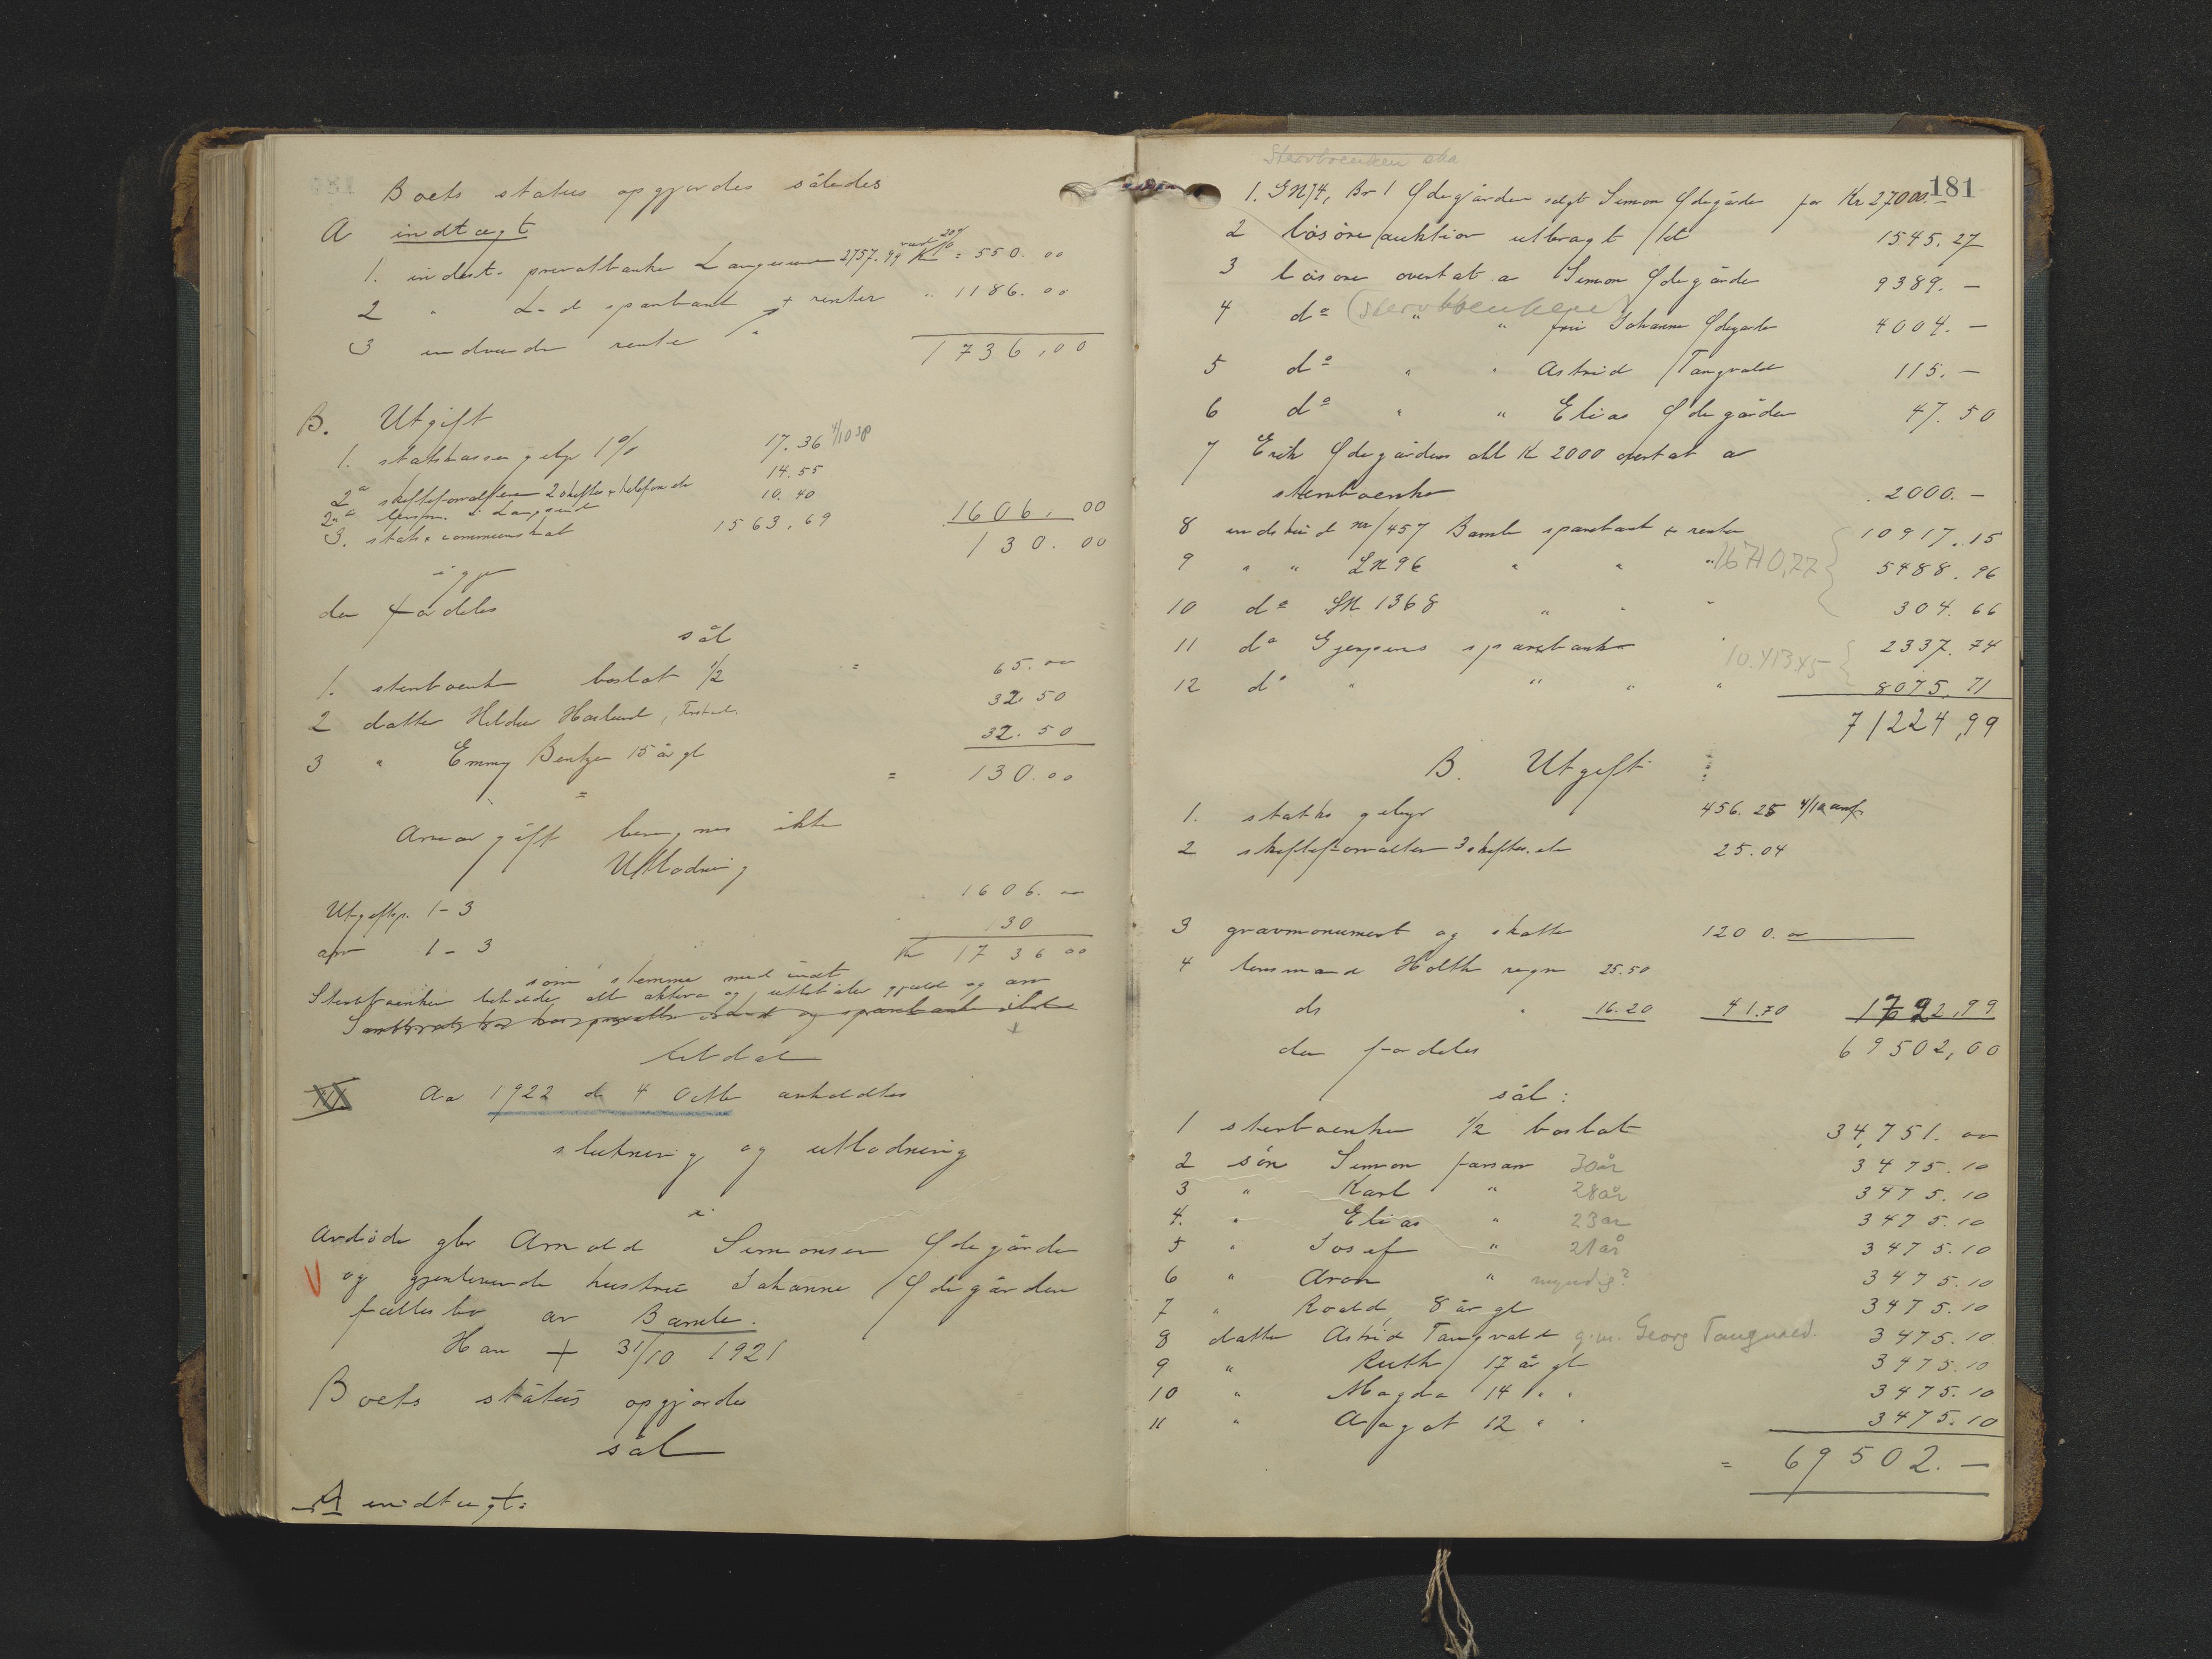 Boets status opgjordes således
A indtægt
1. indest. privatbanken Langesund 2757.99 værd 20% = 550.00
2 " L-d sparebank + renter " 1186.00
3 indvundne renter "
1736,00
B. Utgift
1. statskassen gebyr 1% 17.36 4/10
2 a skifteforvalteren 2 skifter + telefon etc 14.55
2 b lensm. i Langesund 10.40
3. stats & communeskat 1563,69 1606,00
130.00
igjen
der fordeles
sål
1. sterboenken boslot 1/2 = 65.00
2 datter Hildur 32.50
3 " Emmy Bentzen 15 år gl 32.50
= = 130.00
Arveavgift beregnes ikke
Utlodning
Utgiftsp. 1-3 1606.00
arv 1-3 130
Kr 1736 00
som stemmer med indt
Sterboenken beholder alt aktiva og utbetaler gjæld og arv
XX Aar 1922 d 4 Octbr anholdtes
slutning og utlodning
i
avdøde gbr Arnold Simonsen Ødegården
V og gjenlevende hustru Johanne Ødegården
fællesbo av Bamle.
Han + 31/10 1921
Boets status opgjordes
sål
A indtægt:
Sterboenken
181
1. GN 74, Br 1 Ødegården solgt Simon Ødegården for Kr 27000.-
2 løsøreauktion utbragt 1545.27
3 løsøre overtat a Simon Ødegården 9389.-
4 do (sterboenken) " " fru Johanne Ødegården 4004.-
5 do " " Astrid Tangvald 115.-
6 do " " Elias Ødegården 47.50
7 Erik Ødegårdens obl Kr 2000 overtat av
sterboenken 2000.-
8 indskud nr 1457 Bamle sparebank + renter 10917.15
9 " " LN 96 " " " 16710,77 5488.96
10 do SN 1368 " " " 304.66
11 do Gjerpens sparebank " 2337.74
12 do " " " " 10.413.45 8075,71
71224,99
B. Utgift:
1. statsk gebyr 456.25 4/10
2 skifteforvalteren 3 skifter etc 25.04
3 gravmonument og skatter 1200.00
4 lensmand Holth regn 25.50
do " 16.20 41.70 1722,99
der fordeles 69502,00
sål:
1 sterboenken 1/2 boslot 34,751.00
2 søn Simon farsarv 30 år 3475.10
3 " Karl " 28 år 3475.10
4. " Elias " 23 år 3475.10
5 " Josef " 21 år 3475.10
6 " Aron " myndig? 3475.10
7 " Roald, 8 år gl 3475.10
8 datter Astrid Tangvald g.m. Georg Tangvald. 3475.10
9 " Ruth 17 år gl 3475.10
10 " Magda 14 " " 3475.10
11 " Aagot 12 " " 3475.10
= 69502.-